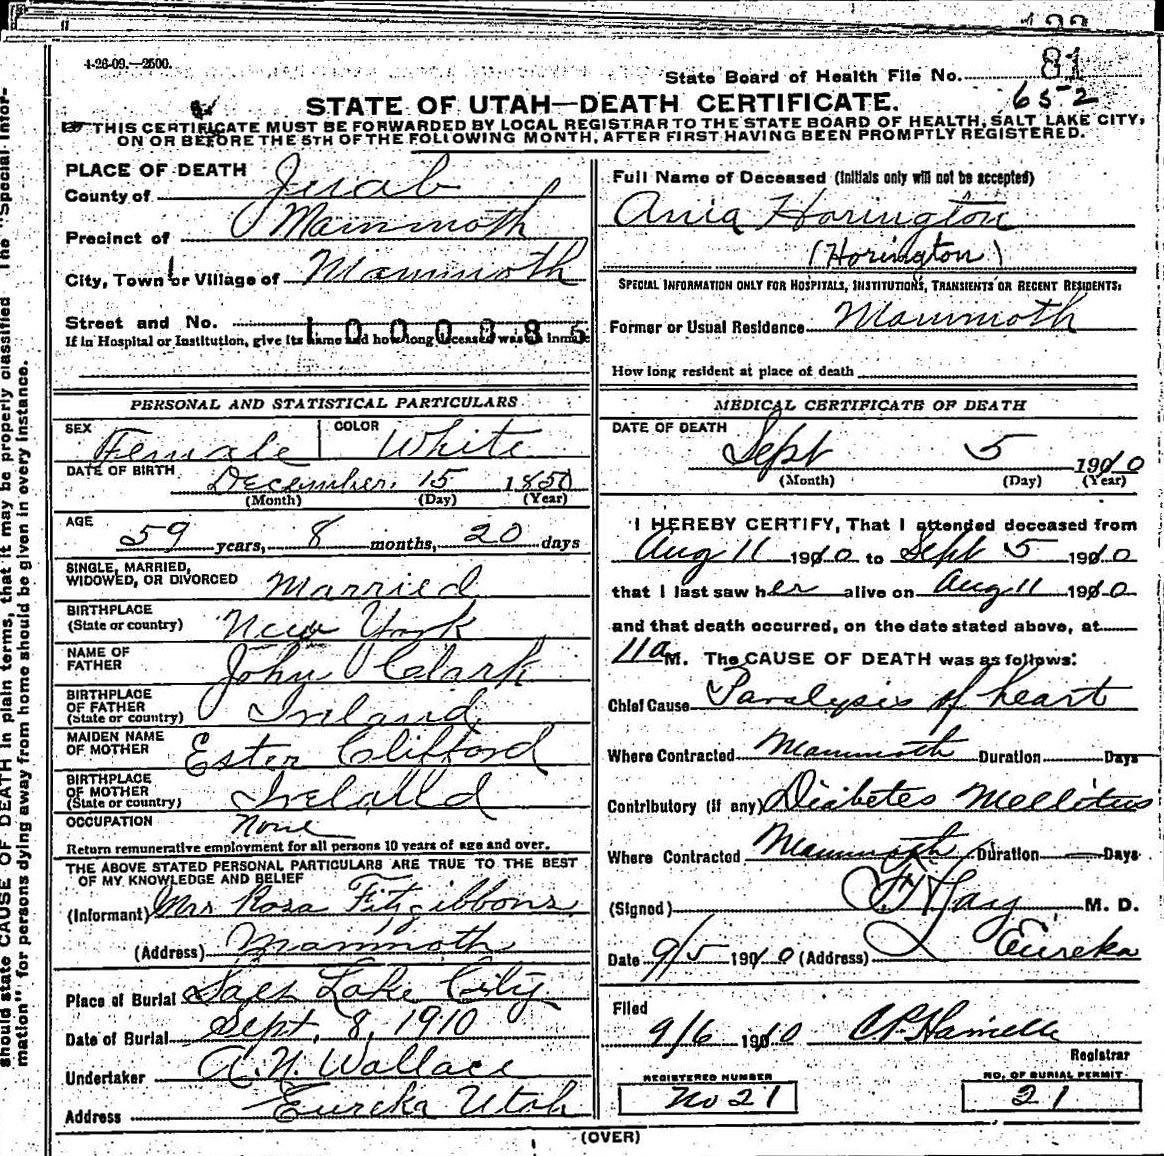 4-26-09.—2500.
State Board of Health File No. 81
652
STATE OF UTAH—DEATH CERTIFICATE.
THIS CERTIFICATE MUST BE FORWARDED BY LOCAL REGISTRAR TO THE STATE BOARD OF HEALTH, SALT LAKE CITY,
ON OR BEFORE THE 5TH OF THE FOLLOWING MONTH, AFTER FIRST HAVING BEEN PROMPTLY REGISTERED.
PLACE OF DEATH
County of Juab
Precinct of Mammoth
City, Town or Village of Mammoth
Street and No.
If in Hospital or Institution, give its name and how long deceased was an inmate
Full Name of Deceased (Initials only will not be accepted)
Ania Horington
(Horington)
SPECIAL INFORMATION ONLY FOR HOSPITALS, INSTITUTIONS, TRANSIENTS OR RECENT RESIDENTS:
Former or Usual Residence Mammoth
How long resident at place of death
PERSONAL AND STATISTICAL PARTICULARS
SEX Female COLOR White
DATE OF BIRTH December 15 1850
(Month) (Day) (Year)
AGE
59 years, 8 months, 20 days
SINGLE, MARRIED,
WIDOWED, OR DIVORCED Married
BIRTHPLACE
(State or country) New York
NAME OF
FATHER John Clark
BIRTHPLACE
OF FATHER
(State or country) Ireland
MAIDEN NAME
OF MOTHER Ester Clifford
BIRTHPLACE
OF MOTHER
(State or country) Irelalld
OCCUPATION None
Return remunerative employment for all persons 10 years of age and over.
THE ABOVE STATED PERSONAL PARTICULARS ARE TRUE TO THE BEST
OF MY KNOWLEDGE AND BELIEF
(Informant) Mrs Rosa Fitzgibbons
(Address) Mammoth
Place of Burial Salt Lake City
Date of Burial Sept. 8, 1910
Undertaker A. N. Wallace
Address Eureka Utah
MEDICAL CERTIFICATE OF DEATH
DATE OF DEATH
Sept 5 1910
(Month) (Day) (Year)
I HEREBY CERTIFY, That I attended deceased from
Aug 11 1910 to Sept 5 1910
that I last saw her alive on Aug 11 1910
and that death occurred, on the date stated above, at
11a M. The CAUSE OF DEATH was as follows:
Chief Cause Paralysis of heart
Where Contracted Mammoth Duration Days
Contributory (if any) Diabetes Mellotus
Where Contracted Mammoth Duration — Days
(Signed) M. D.
Date 9/5 1910 (Address) Eureka
Filed
9/6 1910
Registrar
REGISTERED NUMBER
No 21
NO. OF BURIAL PERMIT
21
(OVER)
should state CAUSE OF DEATH in plain terms, that it may be properly classified The "Special Infor-
mation" for persons dying away from home should be given in every instance.